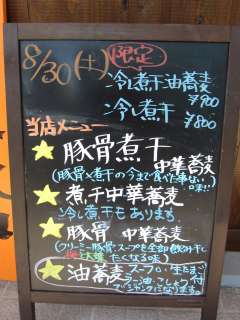 8/30(土) 限定
冷し煮干油蕎麦
¥900
冷し煮干
¥800
当店メニュー
豚骨煮干
中華蕎麦
(豚骨×煮干の今まで食べた事ない味!!)
煮干中華蕎麦
冷し煮干もあります
豚骨 中華蕎麦
(クリーミー豚骨スープを全部飲み干し
たくなる味)
油蕎麦 スープ0・生たまご
ラー油・こしょう付